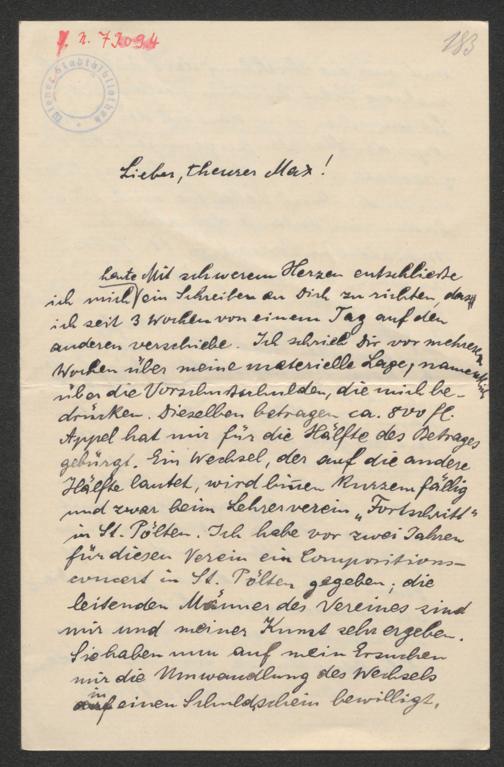 J. N. 73094
183
Wiener Stadtbibliothek
Lieber, theurer Max!
heute
Mit schwerem Herzen entschließe
ich mich ein Schreiben an Dich zu richten, das
ich seit 3 Wochen von einem Tag auf den
anderen verschiebe. Ich schrieb Dir vor mehreren
Wochen über meine materielle Lage, namentlich
über die Vorschußschulden, die mich be-
drücken. Dieselben betragen ca. 800 fl.
Appel hat mir für die Hälfte des Betrages
gebürgt. Ein Wechsel, der auf die andere
Hälfte lautet, wird binnen Kurzem fällig
und zwar beim Lehrerverein „Fortschritt"
in St. Pölten. Ich habe vor zwei Jahren
für diesen Verein ein Compositions-
concert in St. Pölten gegeben; die
leitenden Männer des Vereines sind
mir und meiner Kunst sehr ergeben.
Sie haben nun auf mein Ersuchen
mir die Umwandlung des Wechsels
in
auf einen Schuldschein bewilligt,